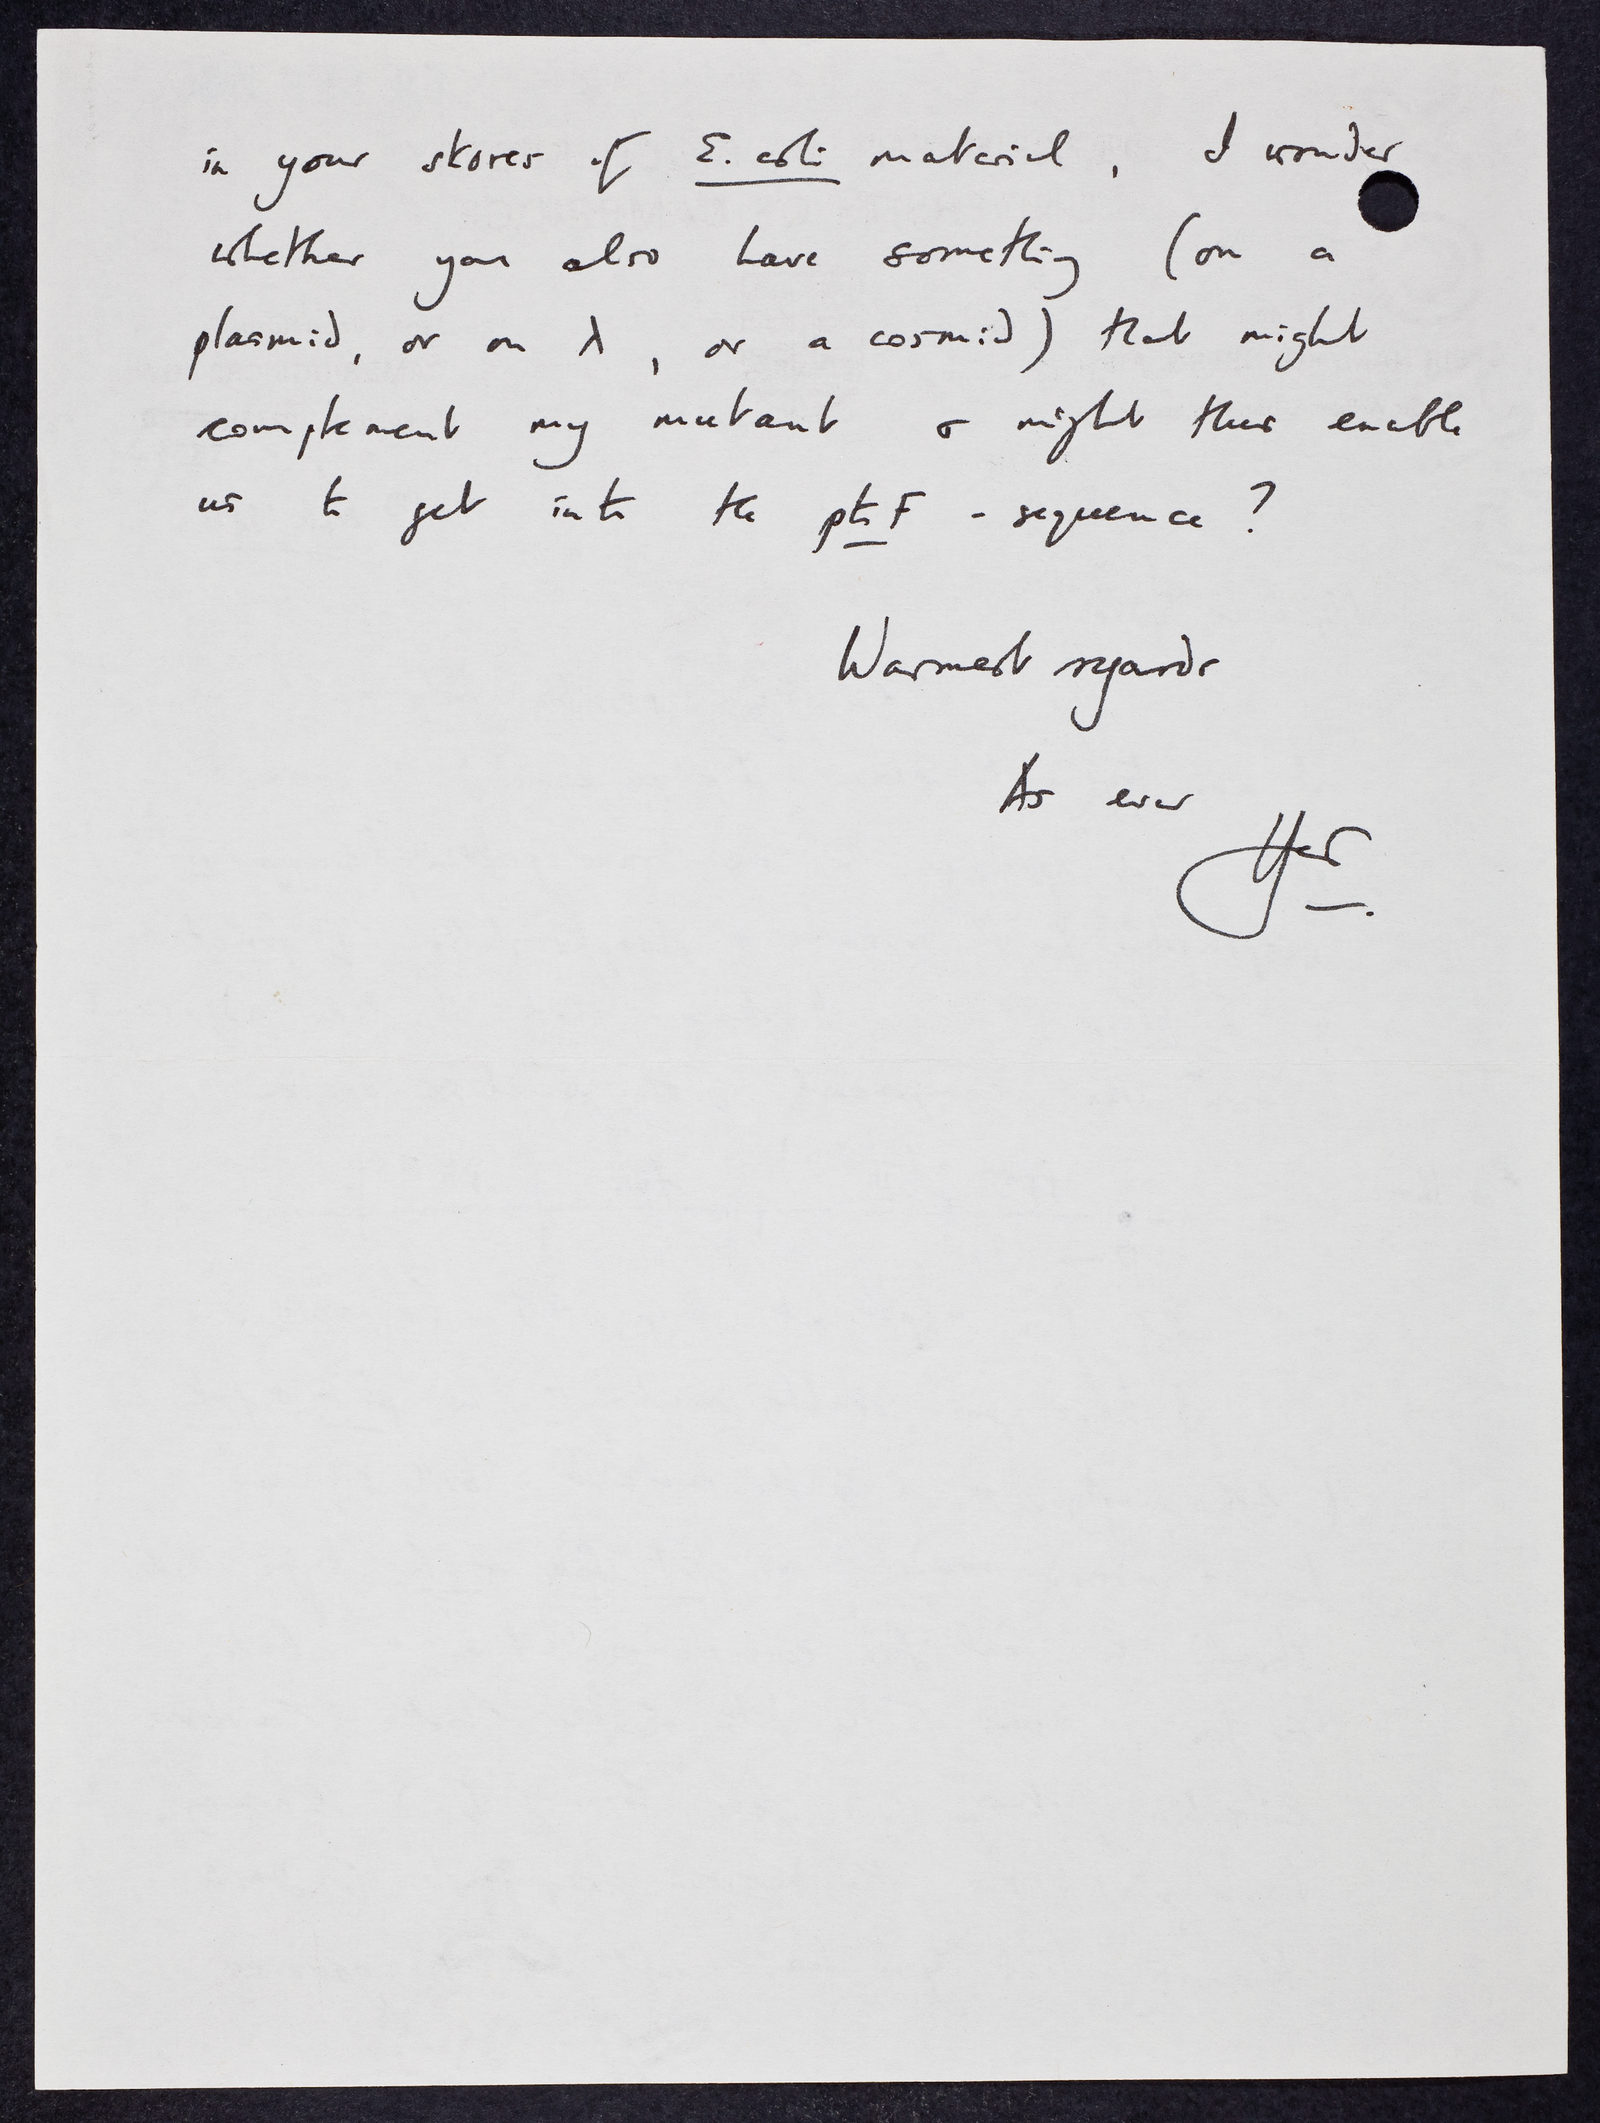 in your stores of E. coli material, I wonder
whether you also have something (on a
plasmid, or on λ, or a cosmid) that might
complement my mutant & might thus enable
us to get into the ptsF - sequence?
Warmest regards
As ever